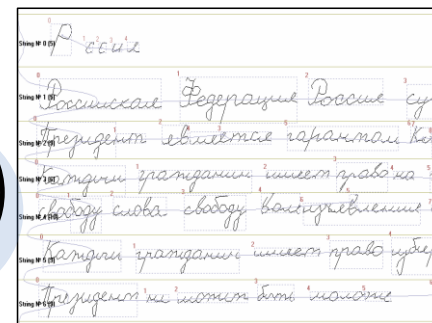 String № 0 (5) Р ссия
String № 1 (5) Российская Федерация Россия
String № 2 (5) Президент является гарантом
String № 3 (5) Каждый гражданин имеет право на
String № 4 (5) свободу слова свободу волеизъявления
String № 5 (5) Каждый гражданин имеет право
String № 6 (5) Президент не может быть моложе